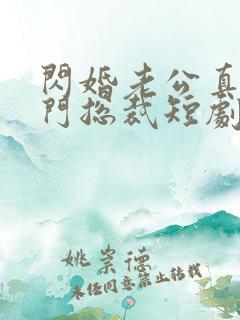 閃婚老公真
門總裁短劇
姚崇德
未經同意禁止轉載